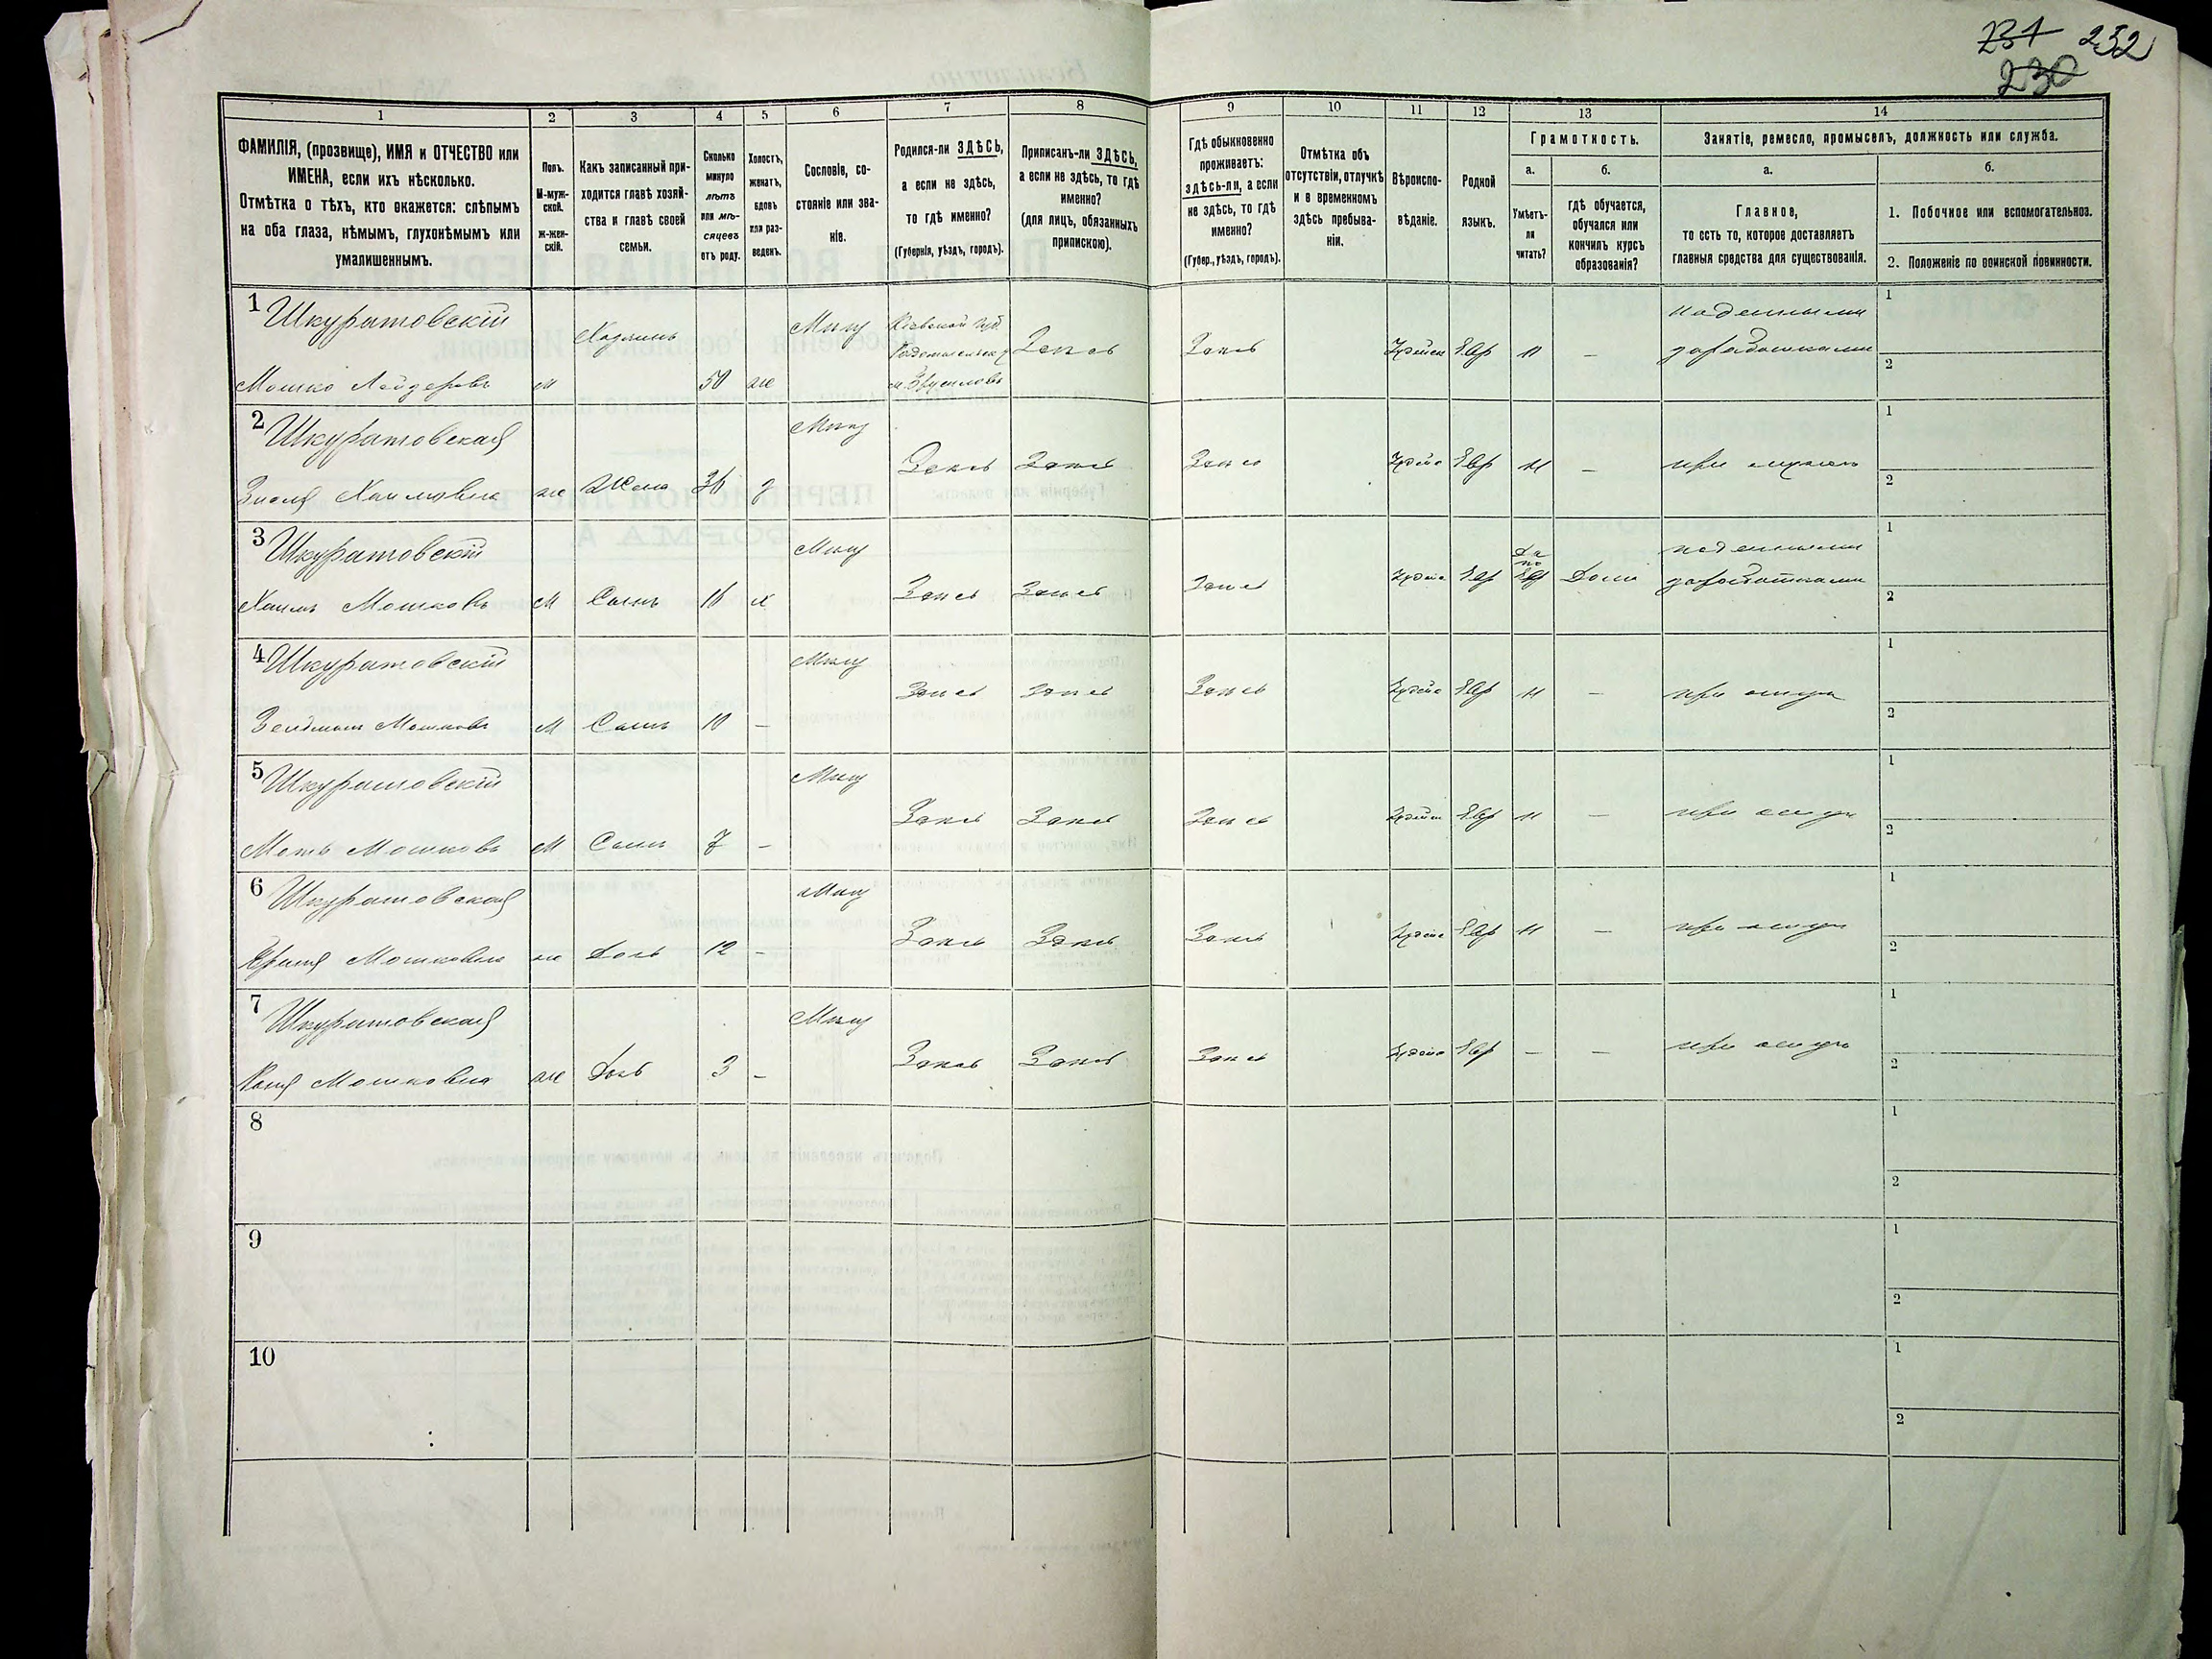 231 252
230
1 2 3 4 5 6 7 8 9 10 11 12 13 14
ФАМИЛІЯ, (прозвище), ИМЯ и ОТЧЕСТВО или
ИМЕНА, если ихъ нѣсколько.
Отмѣтка о тѣхъ, кто окажется: слѣпымъ
на оба глаза, нѣмымъ, глухонѣмымъ или
умалишеннымъ.
Полъ.
М-муж-
ской.
ж-жен-
скій.
Какъ записанный при-
ходится главѣ хозяй-
ства и главѣ своей
семьи.
Сколько
минуло
лѣтъ
или мѣ-
сяцевъ
отъ роду.
Холостъ,
женатъ,
вдовъ
или раз-
веденъ.
Сословіе, со-
стояніе или зва-
ніе.
Родился-ли ЗДѢСЬ,
а если не здѣсь,
то гдѣ именно?
(Губернія, уѣздъ, городъ).
Приписанъ-ли ЗДѢСЬ,
а если не здѣсь, то гдѣ
именно?
(для лицъ, обязанныхъ
припискою).
Гдѣ обыкновенно
проживаетъ:
здѣсь-ли, а если
не здѣсь, то гдѣ
именно?
(Губер., уѣздъ, городъ).
Отмѣтка объ
отсутствіи, отлучкѣ
и в временномъ
здѣсь пребыва-
ніи.
Вѣроиспо-
вѣданіе.
Родной
языкъ.
Грамотность.
а.
Умѣетъ-
ли
читать?
б.
гдѣ обучается,
обучался или
кончилъ курсъ
образованія?
Занятіе, ремесло, промыселъ, должность или служба.
а.
Главное,
то есть то, которое доставляетъ
главныя средства для существованія.
б.
1. Побочное или вспомогательное.
2. Положеніе по воинской повинности.
1 Шкуратовскій
Мошко Лейзеровъ м Хозяинъ 50 же Мѣщ
Кіевской губ
Радомысльск у
м. Брусиловъ
Здѣсь Здѣсь Іудейск Евр н –
поденными
заработками
1
2
2 Шкуратовская
Хаимовна же Жена 36 з Мѣщ Здѣсь Здѣсь Здѣсь Іудейс Евр н – при мужѣ
1
2
3 Шкуратовскій
Хаимъ Мошковъ м Сынъ 16 х Мѣщ Здѣсь Здѣсь Здѣсь Іудейс Евр
Да
по
Евр
Дома
поденными
заработками
1
2
4 Шкуратовскій
Зейдманъ Мошковъ м Сынъ 10 – Мѣщ Здѣсь Здѣсь Здѣсь Іудейс Евр н – при отцѣ
1
2
5 Шкуратовскій
Моть Мошковъ м Сынъ 7 – Мѣщ Здѣсь Здѣсь Здѣсь Іудейс Евр н – при отцѣ
1
2
6 Шкуратовская
Мошковна же Дочь 12 – Мѣщ Здѣсь Здѣсь Здѣсь Іудейс Евр н – при отцѣ
1
2
7 Шкуратовская
Мошковна же Дочь 3 – Мѣщ Здѣсь Здѣсь Здѣсь Іудейс Евр – – при отцѣ
1
2
8
1
2
9
1
2
10
1
2